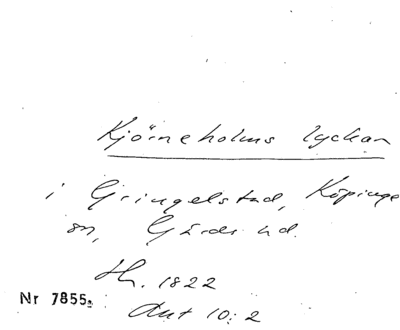 Kjörneholms lyckan
i Gringelstad, Köpinge
sn, Gärds hd.
Th. 1822
Akt 10:2
Nr 7855.